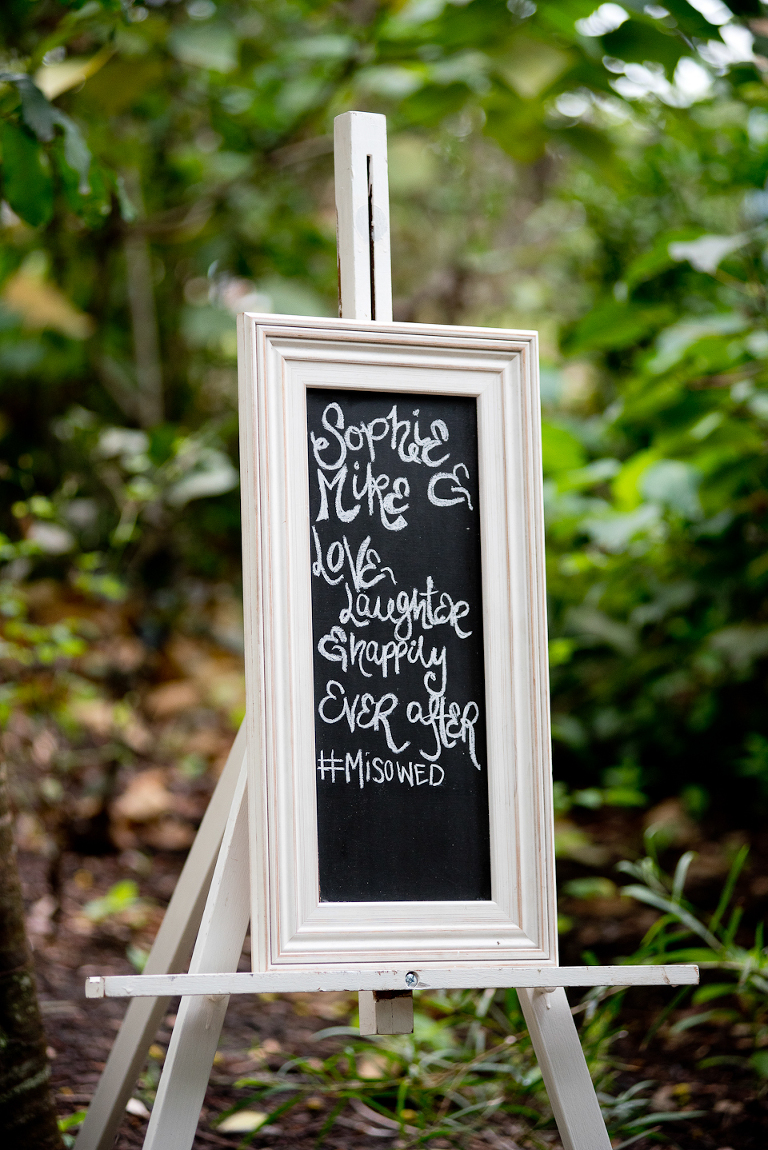 Sophie
Mike &
Love
Laughter
& happily
Ever after
#MisoWED